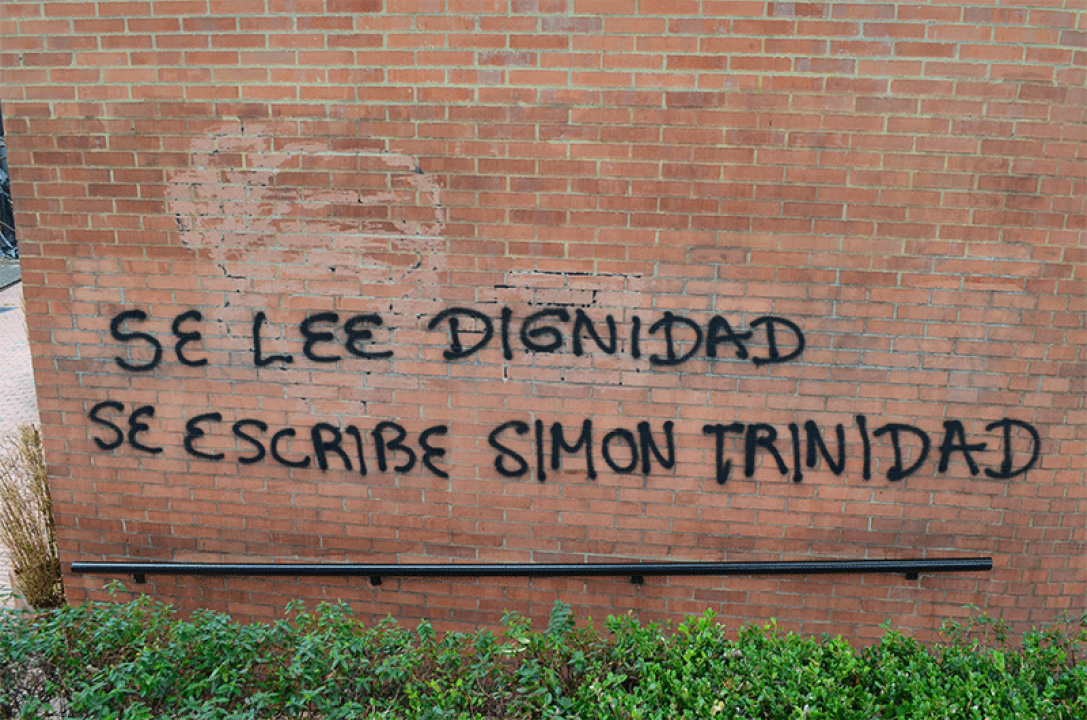 SE LEE DIGNIDAD
SE ESCRIBE SIMON TRINIDAD